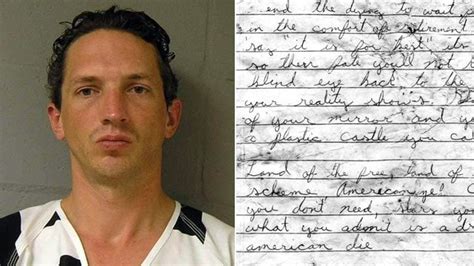 and the dying to wait
in the comfort of retirement
say "it is for best"
so their pale you'll not
blind eye back to the
your reality shows
of your mirror and
a plastic castle you ca
Land of the free, land of
scheme, Americanize!
you don't need, stars
what you admit is a
american die